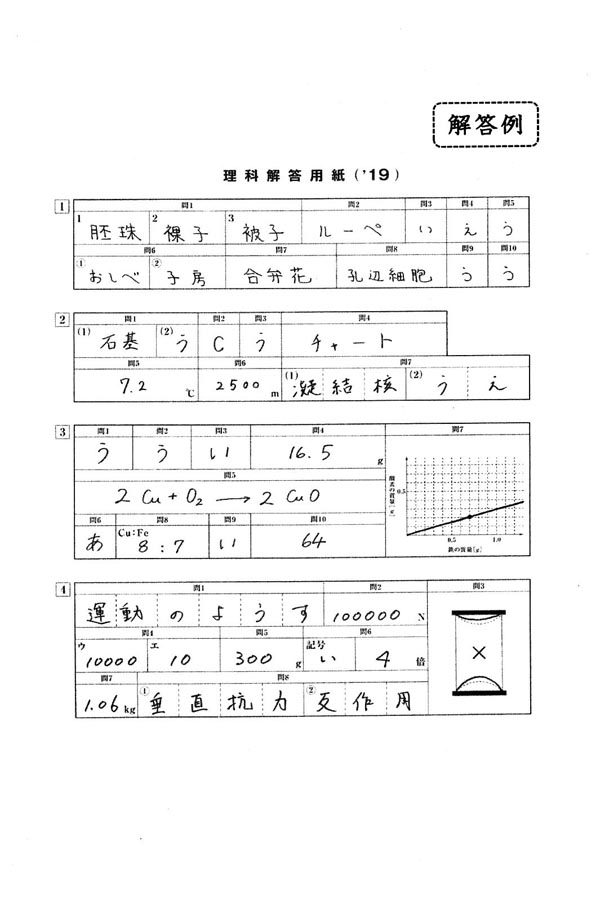 解答例
理科解答用紙('19)
1
問1 問2 問3 問4 問5
1 胚珠 2 裸子 3 被子 ルーペ い え う
問6 問7 問8 問9 問10
① おしべ ② 子房 合弁花 孔辺細胞 う う
2
問1 問2 問3 問4
(1) 石基 (2) う C う チャート
問5 問6 問7
7.2 ℃ 2500 m (1) 凝結核 (2) う え
3
問1 問2 問3 問4 問7
う う い 16.5 g
問5
2Cu+O₂→2CuO
問6 問8 問9 問10
あ Cu:Fe 8:7 い 64
酸素の質量[g]
0.5
0.5 1.0
鉄の質量[g]
4
問1 問2 問3
運動のようす 100000 N
問4 問5 問6
ウ 10000 エ 10 300 g 記号 い 4 倍
問7 問8
1.06 kg ① 垂直抗力 ② 反作用
×